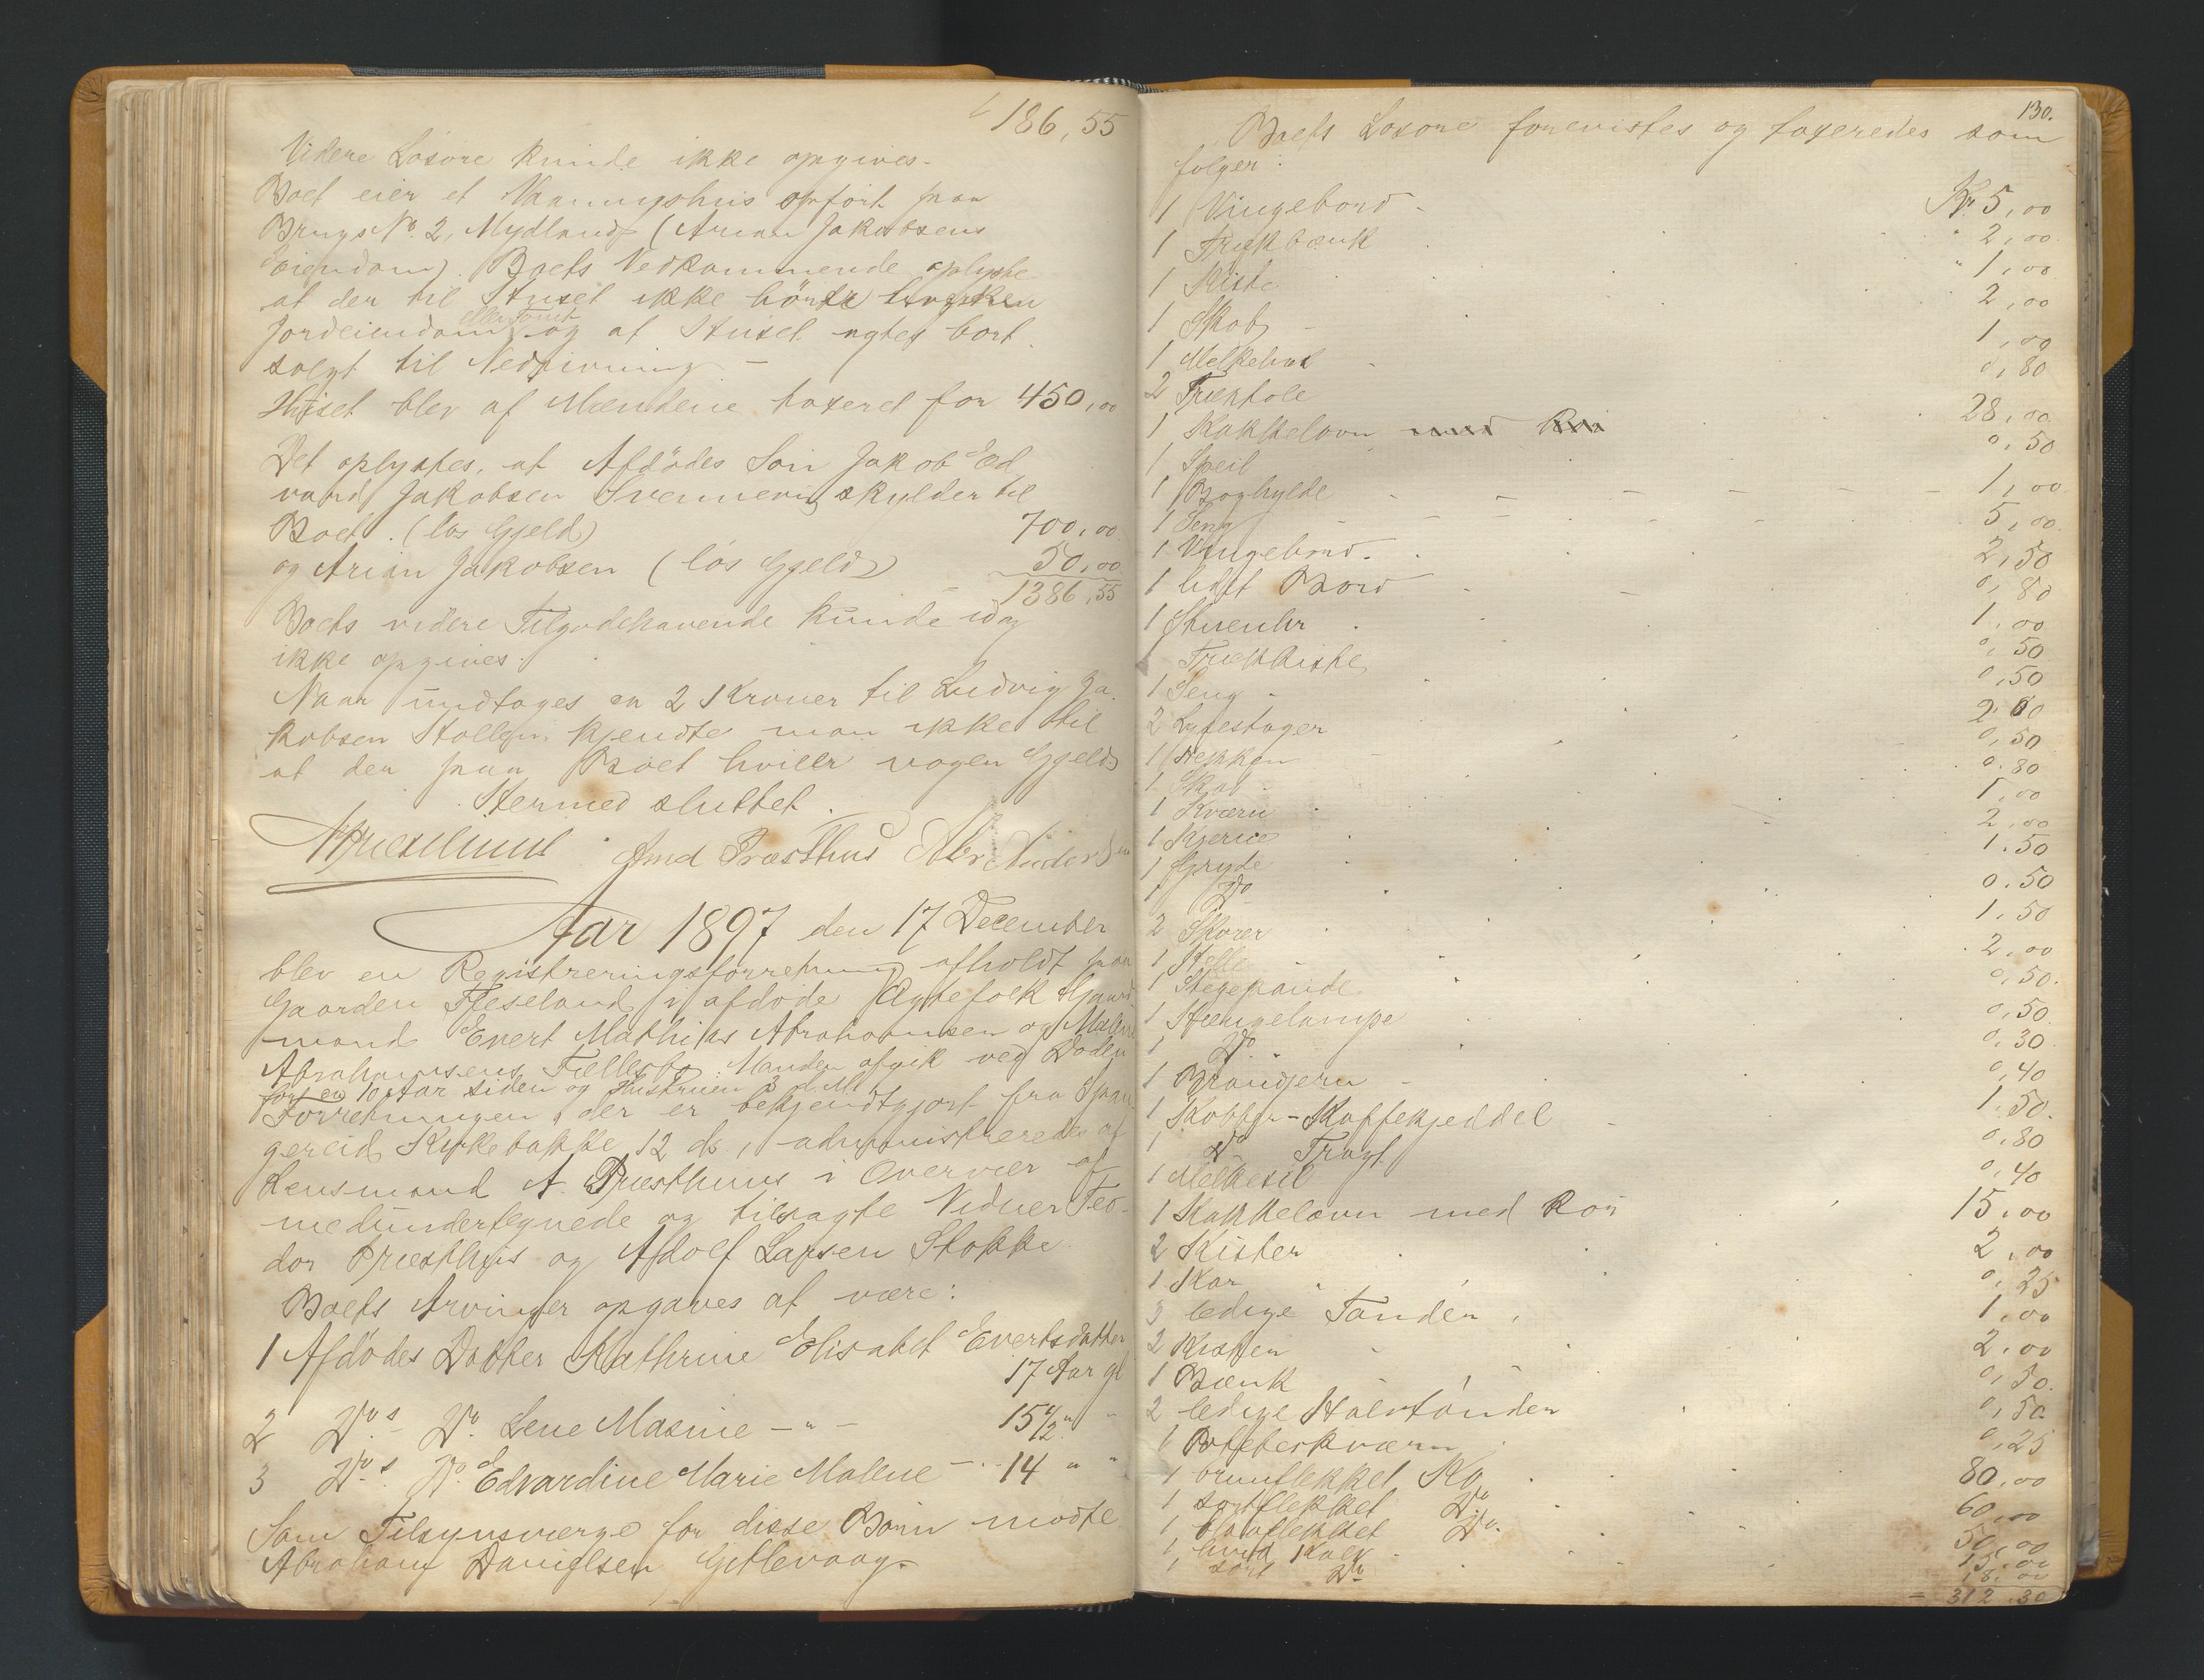 186,55
Videre Løsøre kunde ikke opgives.
Boet eier et Vaaningshus opført paa
Brugs No. 2, Mydland (Arian Jakobsens
Eiendom). Boets Vedkommende oplyste
at der til Huset ikke hörte hverken
Jordeiendom eller Tomt og at Huset agtes bort
solgt til Nedrivning –
Huset blev af Mændene taxeret for 450,00
Det oplystes, at Afdödes Sön Jakob Ed
vard Jakobsen Svennevig skylder til
Boet. (lös Gjeld) 700,00
og Arian Jakobsen (lös Gjeld) 50,00
1386,55
Boets videre Tilgodehavende kunde idag
ikke opgives.
Naar undtages en 2 Kroner til Ludvig Ja
kobsen kjendte man ikke til
at der paa Boet hviler nogen Gjeld
Hermed sluttet.
APræsthuus Amd Præsthus Abr. Anders
Aar 1897 den 17 December
blev en Registreringsforretning afholdt paa
Gaarden Fjeseland i afdöde Ægtefolk Gaard
mand Evert Mathias Abrahamsen og Malene
Abrahamsens Fællesbo. Manden afgik ved Döden
for en 10 Aar siden og Hustruen 3 d. M.
Forretningen, der er bekjendtgjort fra Span
gereid Kirkebakke 12 ds, administreredes af
Lensmand A. Præsthuus i Overvær af
medundertegnede og tilsagte Vidner Teo-
dor Præsthus og Adolf Larsen Stokke
Boets Arvinger opgaves at være:
1 Afdödes Datter Kathrine Elisabet Evertsdatter
17 Aar gl
2 Dos Do Lene Masine – " – 15 1/2 " "
3 Dos Do Edvardine Marie Malene – " 14 " "
Som Tilsynsværge for disse Börn mödte
Abraham Danielsen Gitlevaag.
130.
Boets Løsøre forevistes og taxeredes som
følger:
1 Vingebord Kr. 5,00
1 Trækbænk " 2,00
1 Kiste " 1,00
1 Skab 2,00
1 1,00
2 Træstole 0,80
1 Kakkelovn med Rör 28,00
1 Speil 0,50
1 Boghylde 1,00
1 Seng 5,00
1 Vingebord 2,50
1 lidet Bord 0,80
1 Stueuhr 1,00
Trækkiste 0,50
1 Seng 0,50
2 Lysestager 2,00
1 0,50
1 Skab 0,80
1 Kværn 1,00
1 Kjerne 2,00
1 Gryde 1,50
1 Do 0,50
2 Skorer 1,50
1 Helle 2,00
1 Stegepande 0,50
1 Hængelampe 0,50
1 Do 0,30
1 Brandjern 0,40
1 Kobber-Kaffekjeddel 1,50
1 Do Tragt 0,80
1 Melkesil 0,40
1 Kakkelovn med Rör 15,00
2 Kister 2,00
1 Kar 0,25
3 ledige Tønder 1,00
2 2,00
1 Bænk 0,50
2 ledige Halvtønder 0,50
1 Poteteskværn 0,25
1 brunflekket Ko 80,00
1 sortflekket Do 60,00
1 blaaflekket Do 50,00
1 hvid Kalv 15,00
1 sort Do 18,00
= 312,30